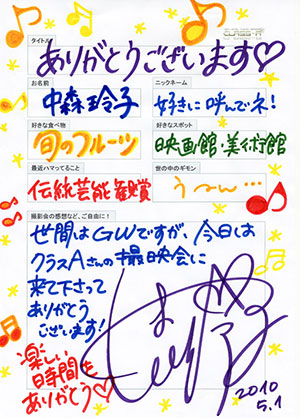 CLASS-A
タイトル
ありがとうございます♡
お名前
中森玲子
ニックネーム
好きに呼んでネ!
好きな食べ物
旬のフルーツ
好きなスポット
映画館・美術館
最近ハマってること
伝統芸能観賞
世の中のギモン
う〜ん…
撮影会の感想など、ご自由に!
世間はGWですが、今日は
クラスAさんの撮映会に
来て下さって
ありがとう
ございます!
楽しい
時間を
ありがとう♡
2010
5.1